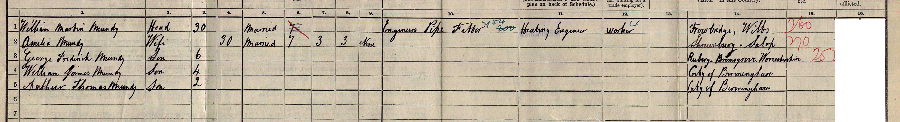 pins on back of Schedule.)
employé.
1 2 3 4 5 6 7 8 9 10 11 12 13 14 15 16
1 William Martin Mundy Head 30 Married 7 Engineers Pipe Fitter Heating Engineer Worker Trowbridge, Wilts 390
2 Amelia Mundy Wife 30 Married 7 3 3 None Shrewsbury Salop 270
3 George Fredrick Mundy Son 6 Bromsgrove Worcestershire
4 William James Mundy Son 4 City of Birmingham
5 Arthur Thomas Mundy Son 2 City of Birmingham
6
7